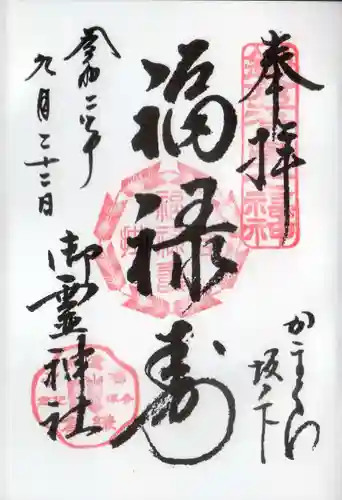 奉拝
かまくら
坂ノ下
福禄寿
令和二年
九月二十二日
御霊神社